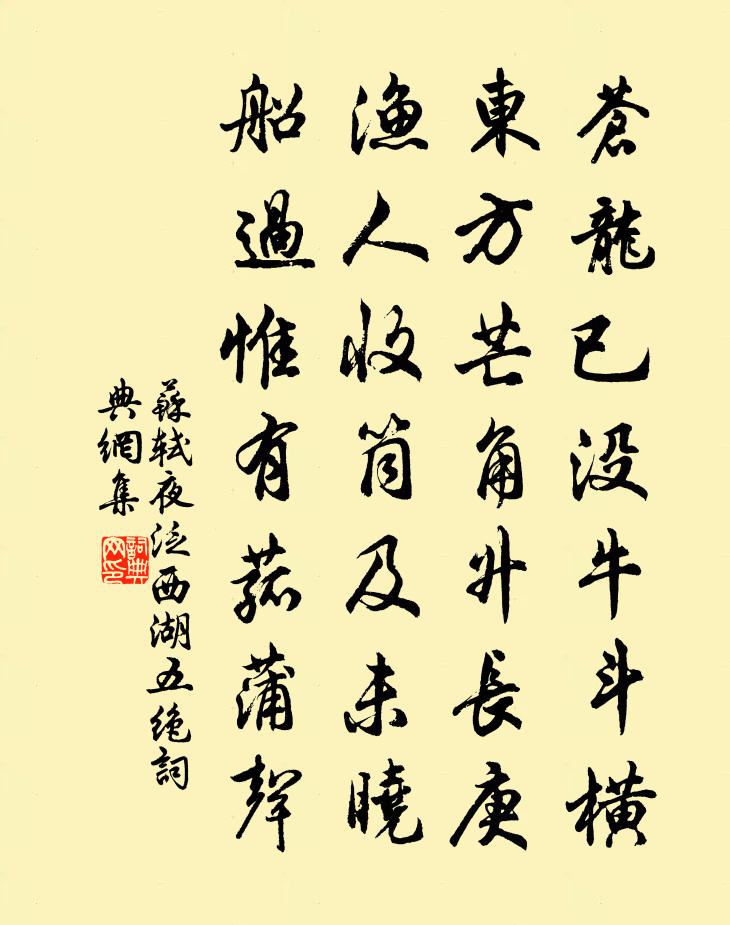 蒼龍已没牛斗橫
東方芒角升長庚
漁人收筒及未曉
船過惟有菰蒲聲
蘇軾夜泛西湖五絕詞
典網集
詞典网印